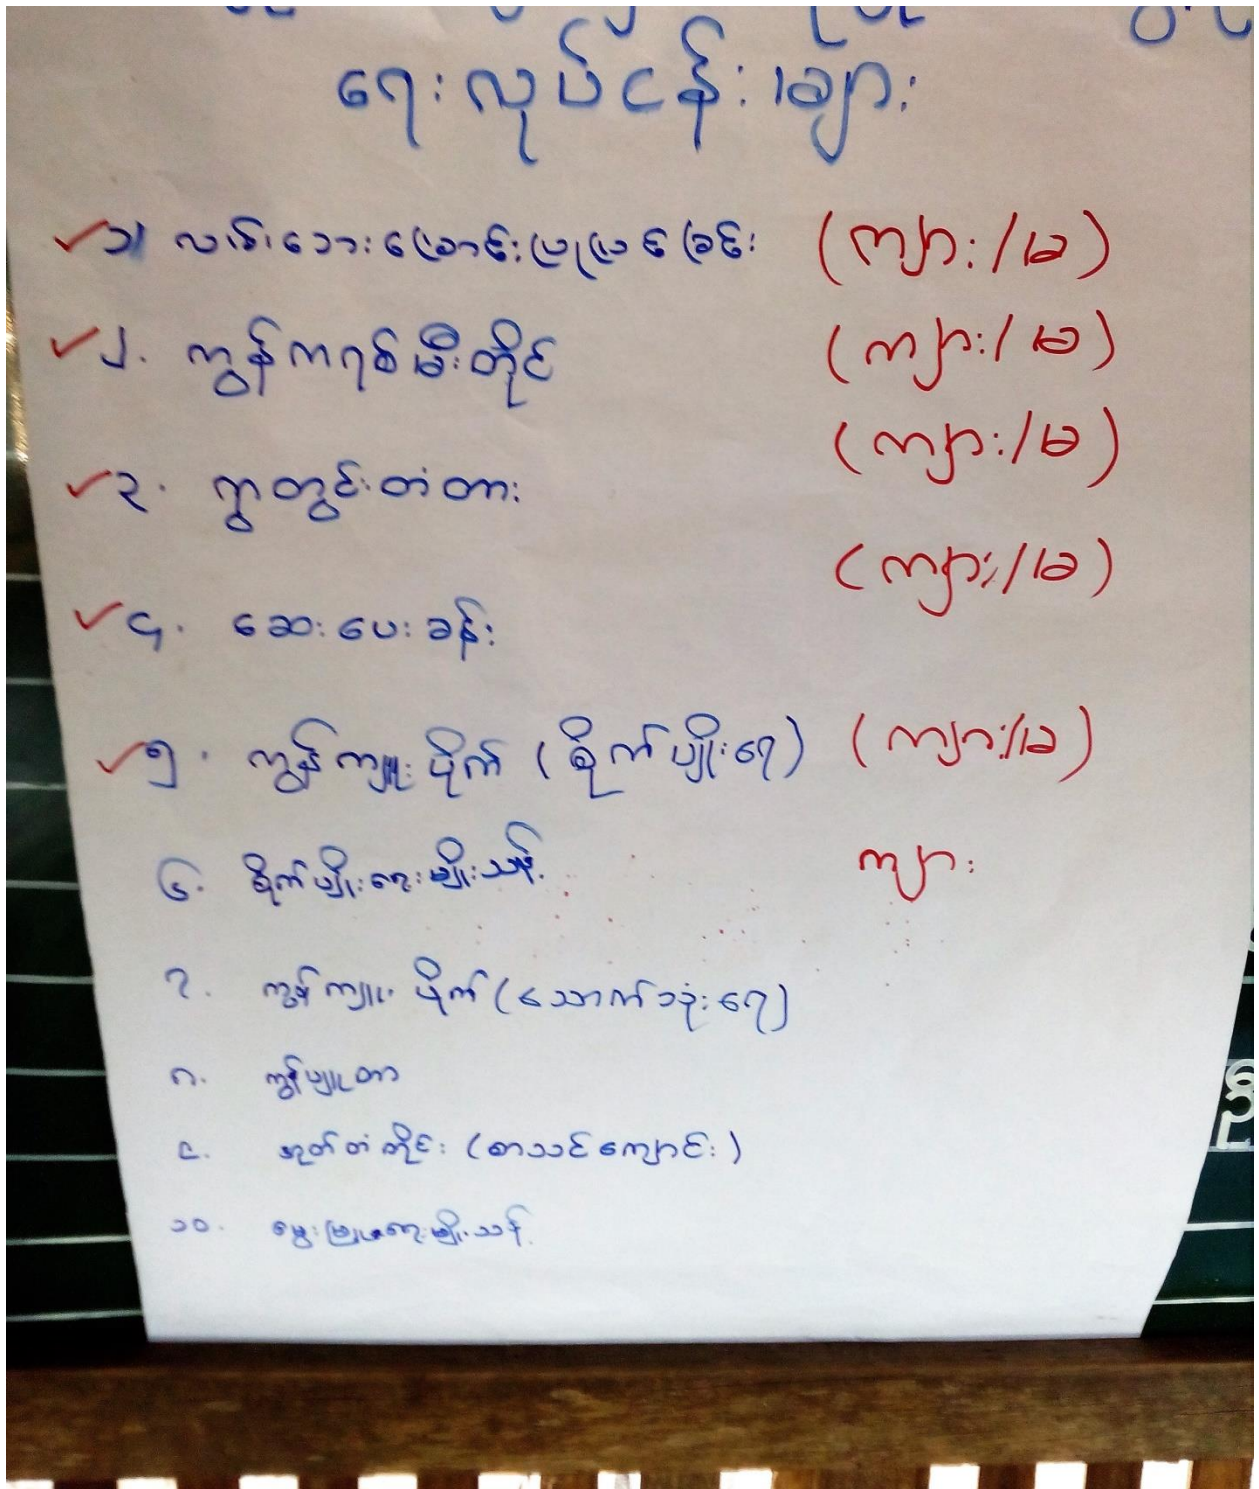 ရေးလုပ်ငန်းများ
၁။ လမ်းဘေးမြောင်းပြုပြင်ခြင်း (ကျား/မ)
၂. ကွန်ကရစ်မီးတိုင် (ကျား/မ)
၃. ရွာတွင်းတံတား (ကျား/မ)
၄. ဆေးပေးခန်း (ကျား/မ)
၅. ကွန်ကျူပိုက် (စိုက်ပျိုးရေ) (ကျား/မ)
၆. စိုက်ပျိုးရေးမျိုးသန့် ကျား
၇. ကွန်ကျူပိုက် (သောက်သုံးရေ)
၈. ကွန်ပျူတာ
၉. အုတ်တံတိုင်း (စာသင်ကျောင်း)
၁၀. မွေးမြူရေးမျိုးသန့်